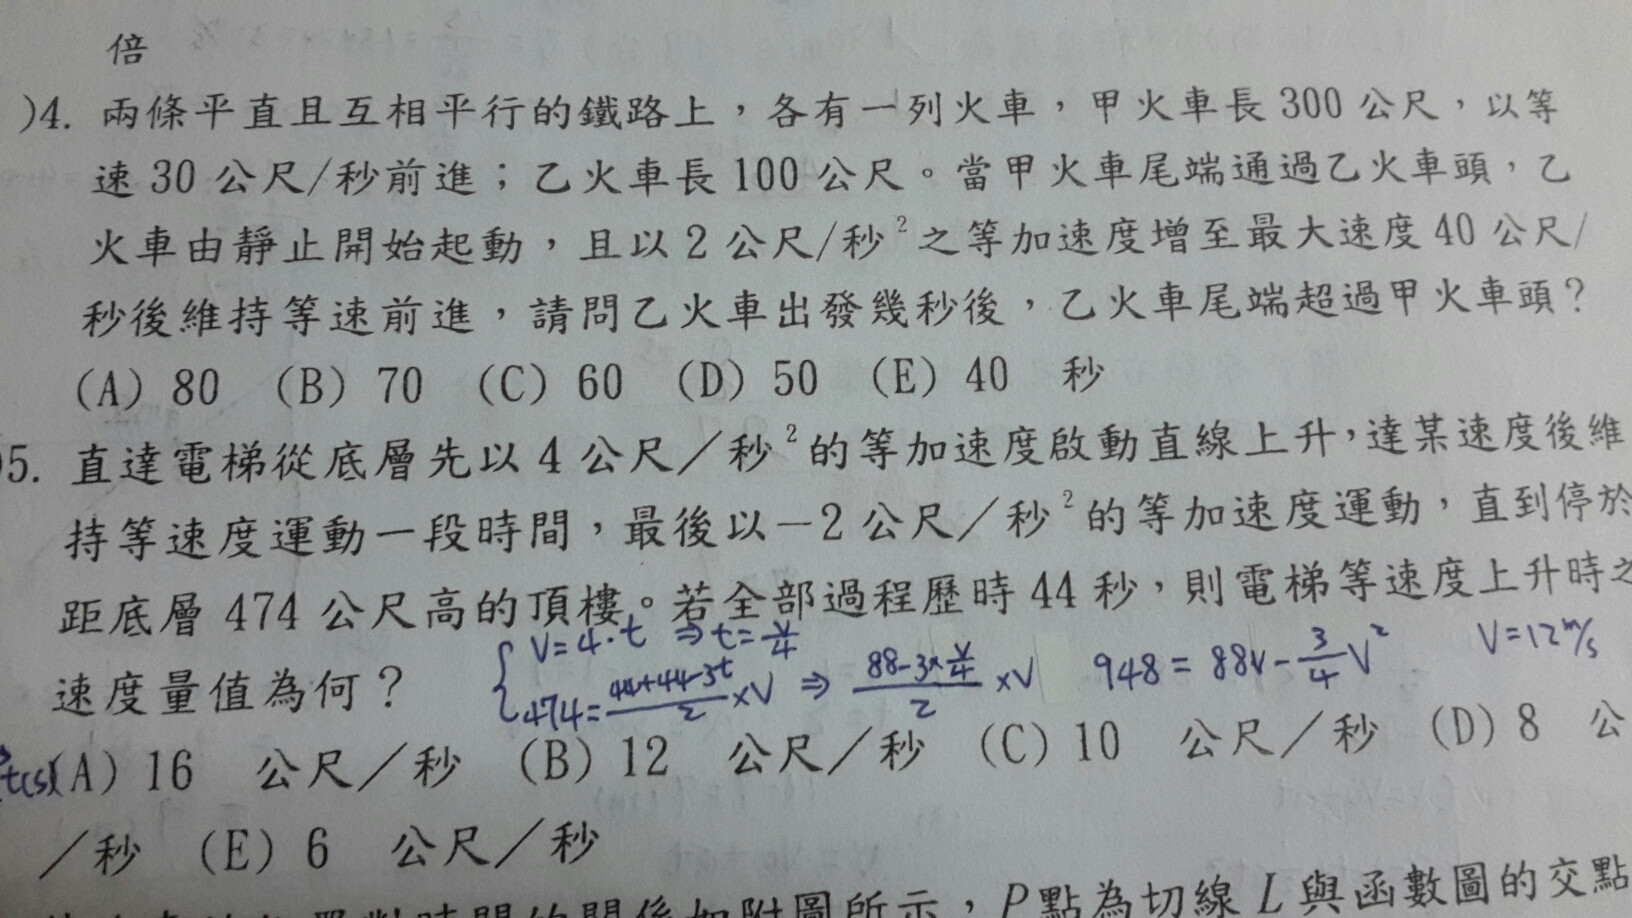 倍
)4. 兩條平直且互相平行的鐵路上，各有一列火車，甲火車長 300 公尺，以等
速 30 公尺/秒前進；乙火車長 100 公尺。當甲火車尾端通過乙火車頭，乙
火車由靜止開始起動，且以 2 公尺/秒² 之等加速度增至最大速度 40 公尺/
秒後維持等速前進，請問乙火車出發幾秒後，乙火車尾端超過甲火車頭？
(A) 80 (B) 70 (C) 60 (D) 50 (E) 40 秒
)5. 直達電梯從底層先以 4 公尺／秒² 的等加速度啟動直線上升，達某速度後維
持等速度運動一段時間，最後以－2 公尺／秒² 的等加速度運動，直到停於
距底層 474 公尺高的頂樓。若全部過程歷時 44 秒，則電梯等速度上升時之
速度量值為何？
{ V=4·t ⇒ t=V/4
474=(44+44-3t)/2 ×V ⇒ (88-3×V/4)/2 ×V 948=88V-3/4V² V=12m/s
t(s)
(A) 16 公尺／秒 (B) 12 公尺／秒 (C) 10 公尺／秒 (D) 8 公
／秒 (E) 6 公尺／秒
關係如附圖所示，P點為切線 L 與函數圖的交點